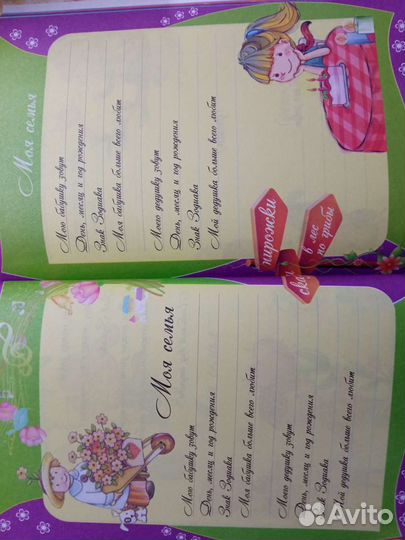 Моя семья
Мою бабушку зовут
День, месяц и год рождения
Знак Зодиака
Моя бабушка больше всего любит
Моего дедушку зовут
День, месяц и год рождения
Знак Зодиака
Мой дедушка больше всего любит
Моя семья
Мою бабушку зовут
День, месяц и год рождения
Знак Зодиака
Моя бабушка больше всего любит
Моего дедушку зовут
День, месяц и год рождения
Знак Зодиака
Мой дедушка больше всего любит
пирожки
в лес
по грибы
Avito